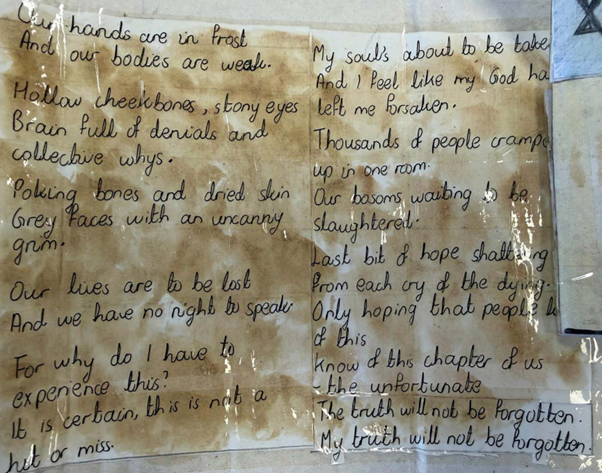 Our hands are in frost
And our bodies are weak.
Hollow cheekbones, stony eyes
Brain full of denials and
collective whys.
Poking bones and dried skin
Grey faces with an uncanny
grim.
Our lives are to be lost
And we have no right to speak.
For why do I have to
experience this?
It is certain, this is not a
hit or miss.
My soul's about to be take
And I feel like my God ha
left me forsaken.
Thousands of people crampe
up in one room.
Our bosoms waiting to be
slaughtered.
Last bit of hope shattering
from each cry of the dying.
Only hoping that people
of this
know of this chapter of us
- the unfortunate
The truth will not be forgotten.
My truth will not be forgotten.